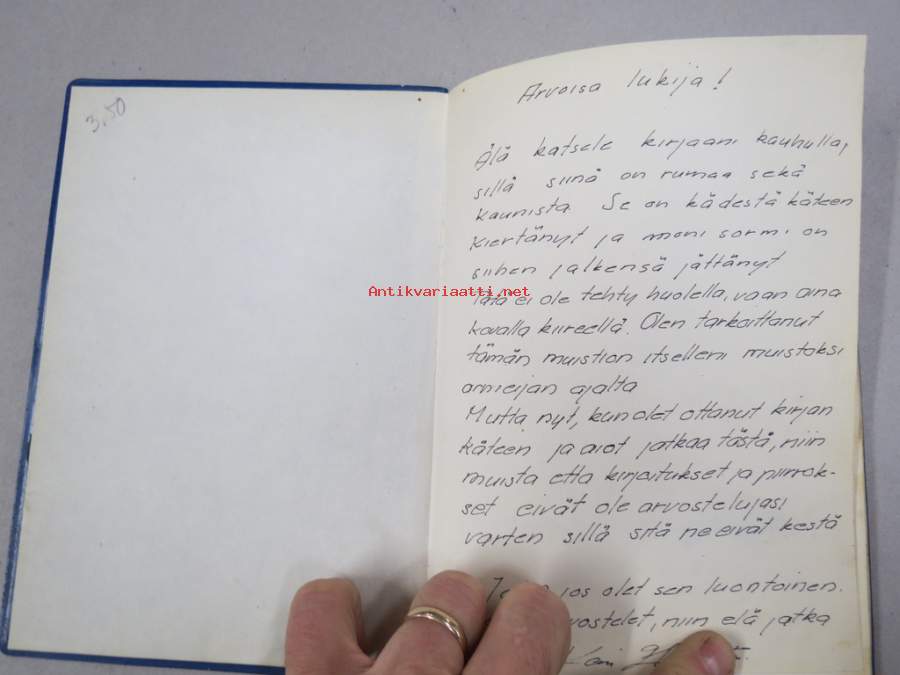 3,50
Arvoisa lukija!
Älä katsele kirjaani kauhulla,
sillä siinä on rumaa sekä
kaunista. Se on kädestä käteen
kiertänyt ja moni sormi on
siihen jälkensä jättänyt
Antikvariaatti.net
Tätä ei ole tehty huolella, vaan aina
kovalla kiireellä. Olen tarkoittanut
tämän muistion itselleni muistoksi
amieijan ajalta
Mutta nyt, kun olet ottanut kirjan
käteen ja aiot jatkaa tästä, niin
muista että kirjoitukset ja piirrok-
set eivät ole arvostelujasi
varten sillä sitä ne eivät kestä
jos olet sen luontoinen.
niin elä jatka